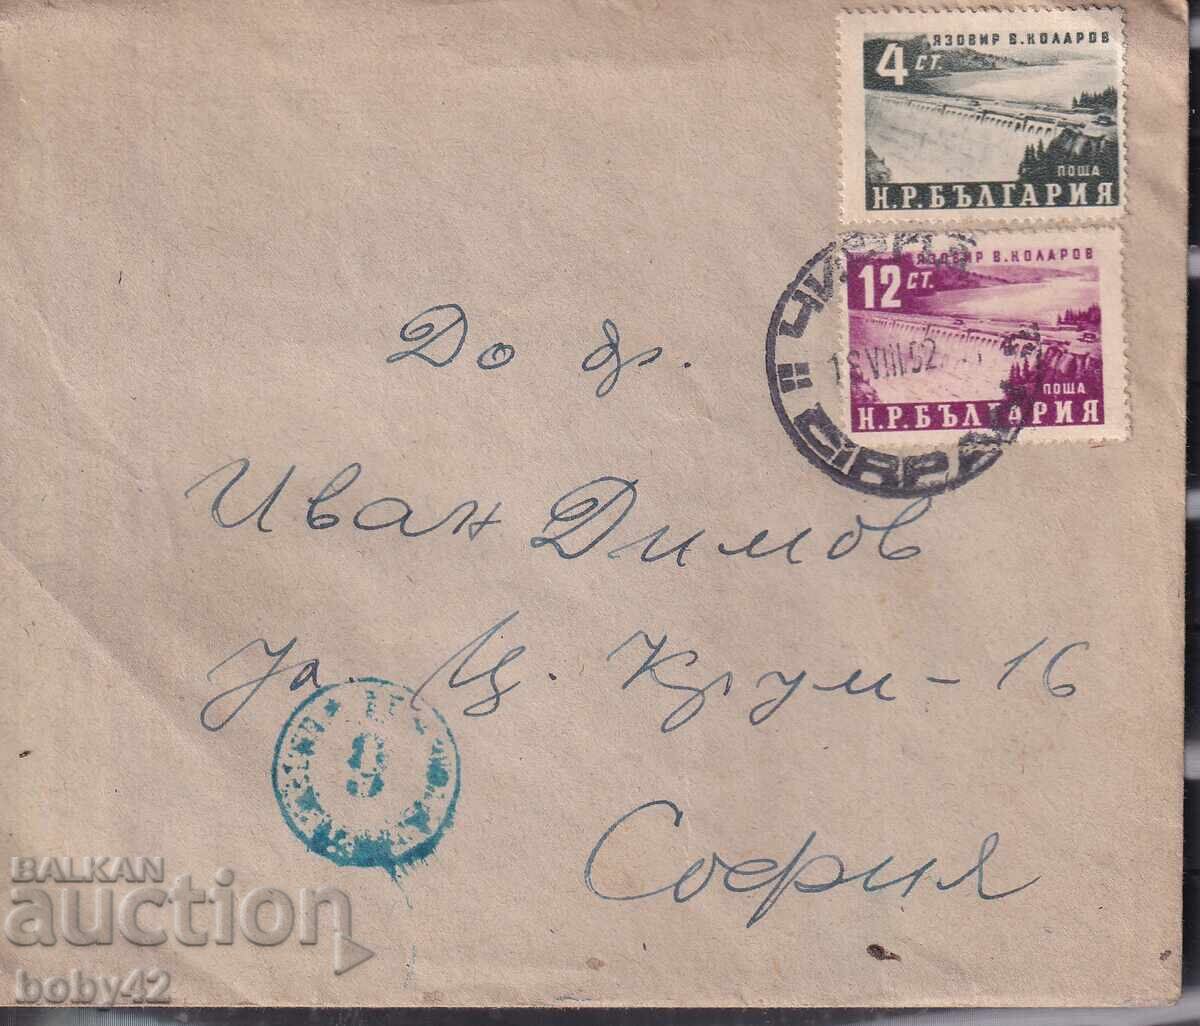 ЯЗОВИР В. КОЛАРОВ
4 СТ.
ПОЩА
Н.Р.БЪЛГАРИЯ
ЯЗОВИР В. КОЛАРОВ
12 СТ.
ПОЩА
Н.Р.БЪЛГАРИЯ
VIII.52
До др.
Иван Димов
Ул. Ц. Крум-16
9
София
BALKAN
auction
boby42